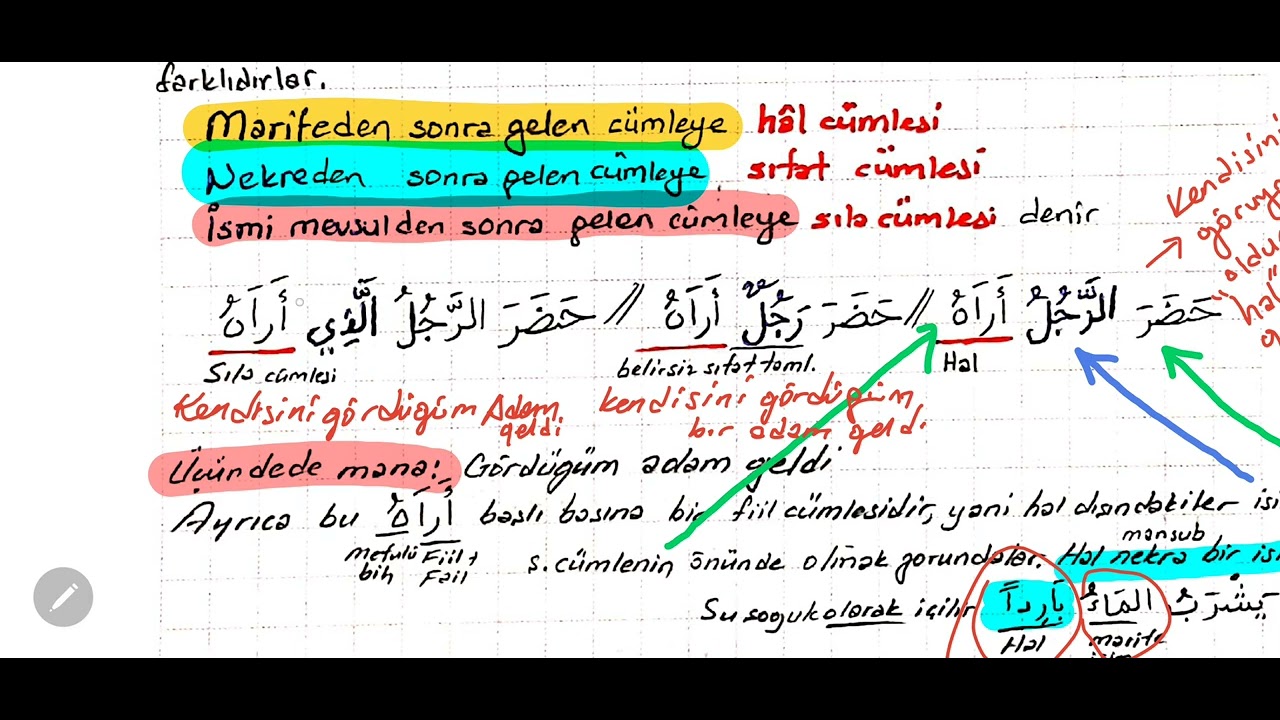 farklıdırlar.
Marifeden sonra gelen cümleye hâl cümlesi
Nekreden sonra gelen cümleye, sıfat cümlesi
İsmi mevsulden sonra gelen cümleye sıla cümlesi denir
Kendisini
حَضَرَ الرَّجُلُ أَرَاهُ // حَضَرَ رَجُلٌ أَرَاهُ // حَضَرَ الرَّجُلُ الَّذِي أَرَاهُ
Hal
belirsiz sıfat taml.
Sıla cümlesi
Kendisini gördüğüm Adam geldi
kendisini gördüğüm bir adam geldi
Üçündede mana: Gördüğüm adam geldi
Ayrıca bu أَرَاهُ başlı başına bir fiil cümlesidir, yani hal dışındakiler
mefulü bih
Fiil + Fail
s. cümlenin önünde olmak zorundalar. Hal nekra bir
mansub
Su soğuk olarak içilir يَشْرَبُ المَاءُ بَارِداً
Hal
marife